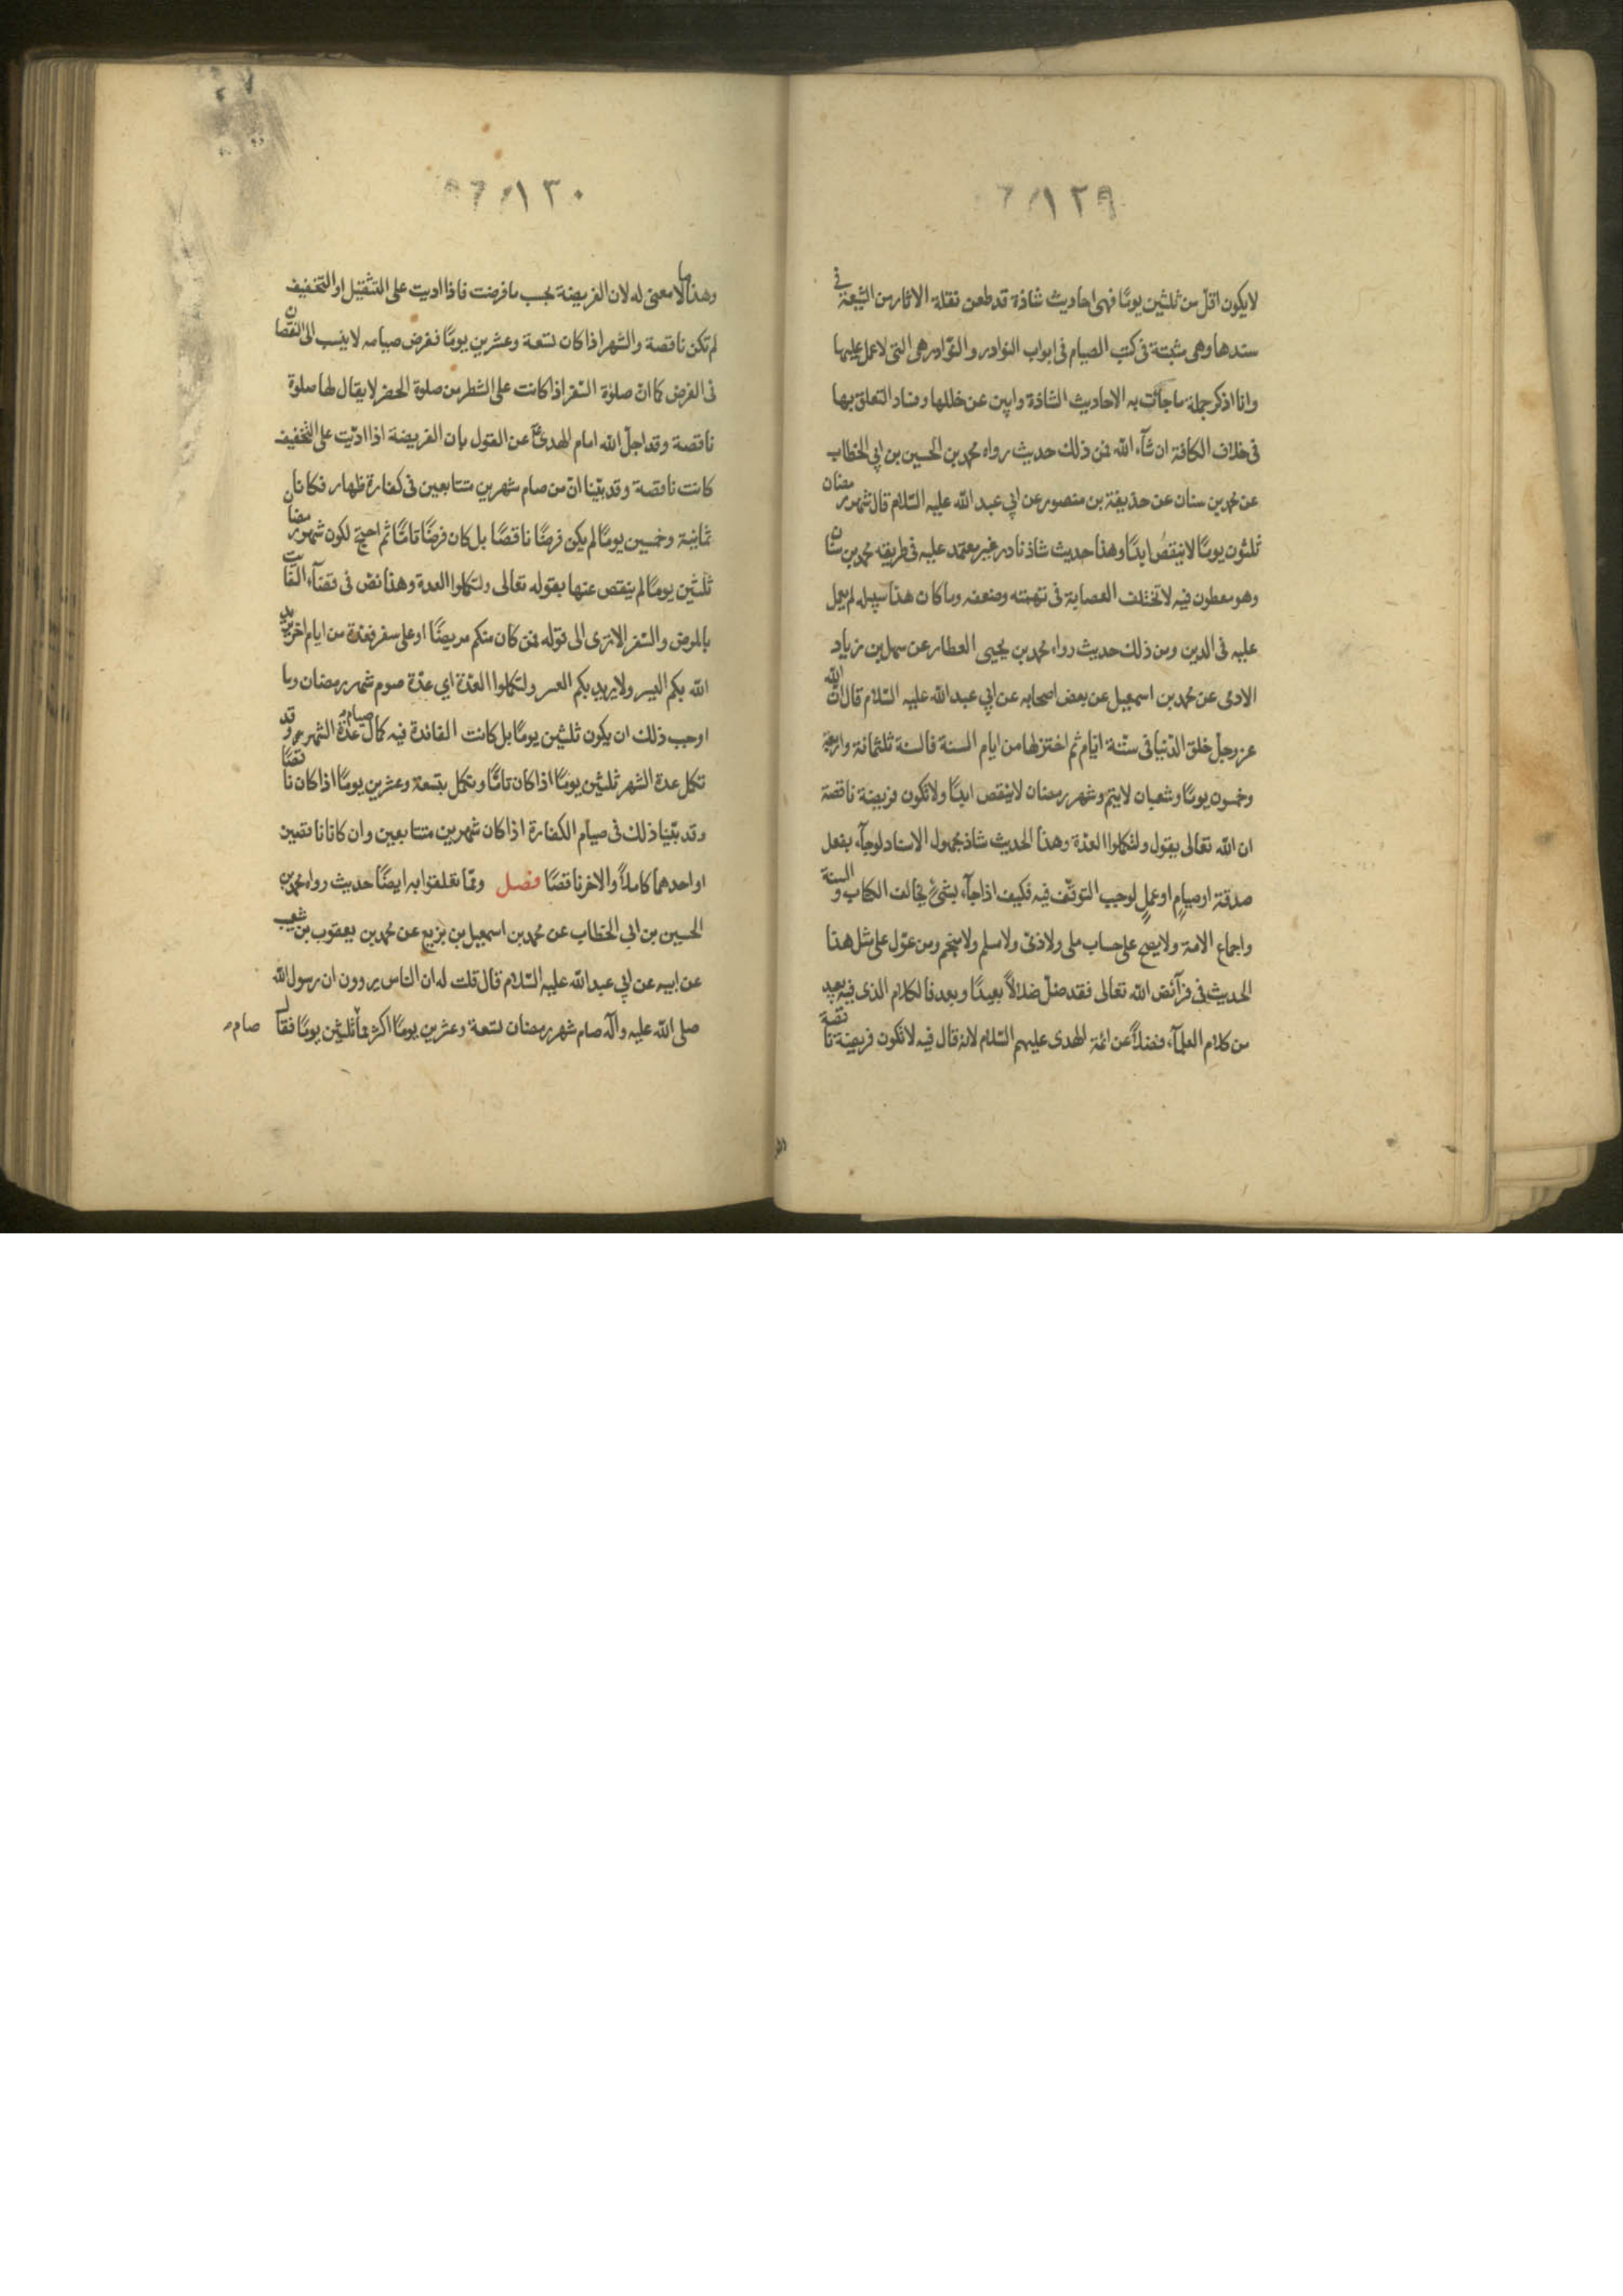 ١٢٩
لا يكون اقل من ثلثين يومًا فهى احاديث شاذة قد طعن نقلة الاثار من الشيعة فى
سندها وهى مثبتة فى كتب الصيام فى ابواب النوادر والنوادر هى التى لا عمل عليها
وانا اذكر جملة ما جائت به الاحاديث الشاذة وابين عن خللها وفساد التعلق بها
فى خلاف الكافة ان شآء الله فمن ذلك حديث رواه محمد بن الحسين بن ابى الخطاب
عن محمد بن سنان عن حذيفة بن منصور عن ابى عبد الله عليه السّلام قال شهر رمضان
ثلثون يومًا لا ينقصُ ابدًا وهذا حديث شاذ نادر غير معتمد عليه فى طريقه محمد بن سنان
وهو مطعون فيه لا تختلف العصابة فى تهمته وضعفه وما كان هذا سبيله لم يعمل
عليه فى الدين ومن ذلك حديث رواه محمد بن يحيى العطار عن سهل بن زياد
الادمى عن محمد بن اسمعيل عن بعض اصحابه عن ابى عبد الله عليه السّلام قال انّ الله
عز وجل خلق الدّنيا فى ستّة ايّام ثم اختزلها من ايام السنة فالسنة ثلثمائة واربعة
وخمسون يومًا وشعبان لا يتم وشهر رمضان لا ينقص ابدًا ولا تكون فريضة ناقصة
ان الله تعالى يقول ولتكملوا العدّة وهذا الحديث شاذ مجهول الاسناد لو جآء بفعل
صدقة او صيامٍ او عملٍ لوجب التوقّف فيه فكيف اذا جآء بشىءٍ يخالف الكتاب والسنة
واجماع الامة ولا يصح على حساب ملى ولا ذمّى ولا مسلم ولا منجم ومن عوّل على مثل هذا
الحديث فى فرآئض الله تعالى فقد ضلّ ضلالاً بعيدًا وبعد فالكلام الذى فيه بعيد
من كلام العلمآء فضلاً عن ائمة الهدى عليهم السّلام لانه قال فيه لا تكون فريضة ناقصة
١٣٠
وهذا ما لا معنى له لان الفريضة بحسب ما فرضت فاذا اديت على التثقيل او التخفيف
لم تكن ناقصة والشهر اذا كان تسعة وعشرين يومًا ففرض صيامه لا ينسب الى النقصان
فى الفرض كما انّ صلوة السّفر اذا كانت على الشطر من صلوة الحضر لا يقال لها صلوة
ناقصة وقد اجلّ الله امام الهدىؑ عن القول بان الفريضة اذا ادّيت على التّخفيف
كانت ناقصة وقد بيّنا انّ من صام شهرين متتابعين فى كفارة ظهار فكانا
ثمانية وخمسين يومًا لم يكن فرضًا ناقصًا بل كان فرضًا تامًّا ثم احتج لكون شهر رمضان
ثلثين يومًا لم ينقص عنها بقوله تعالى ولتكملوا العدة وهذا نصّ فى قضآء الفائت
بالمرض والسّفر الا ترى الى قوله فمن كان منكم مريضًا او على سفر فعدّة من ايام اخر يريد
الله بكم اليسر ولا يريد بكم العسر ولتكملوا العدّة اي عدّة صوم شهر رمضان وما
اوجب ذلك ان يكون ثلثين يومًا بل كانت الفائدة فيه كمال عدّة صيام الشهر وقد
تكمل عدة الشهر ثلثين يومًا اذا كان تامًّا وتكمل بتسعة وعشرين يومًا اذا كان ناقصًا
وقد بيّنا ذلك فى صيام الكفارة اذا كان شهرين متتابعين وان كانا ناقصين
او احدهما كاملاً والاخر ناقصًا فصل وممّا تعلقوا به ايضًا حديث رواه محمد بن
الحسين بن ابى الخطاب عن محمد بن اسمعيل بن بزيع عن محمد بن يعقوب بن شعيب
عن ابيه عن ابى عبد الله عليه السّلام قال قلت له ان الناس يروون ان رسول الله
صلى الله عليه واله صام شهر رمضان تسعة وعشرين يومًا اكثر مما ثلثين يومًا فقال
صام